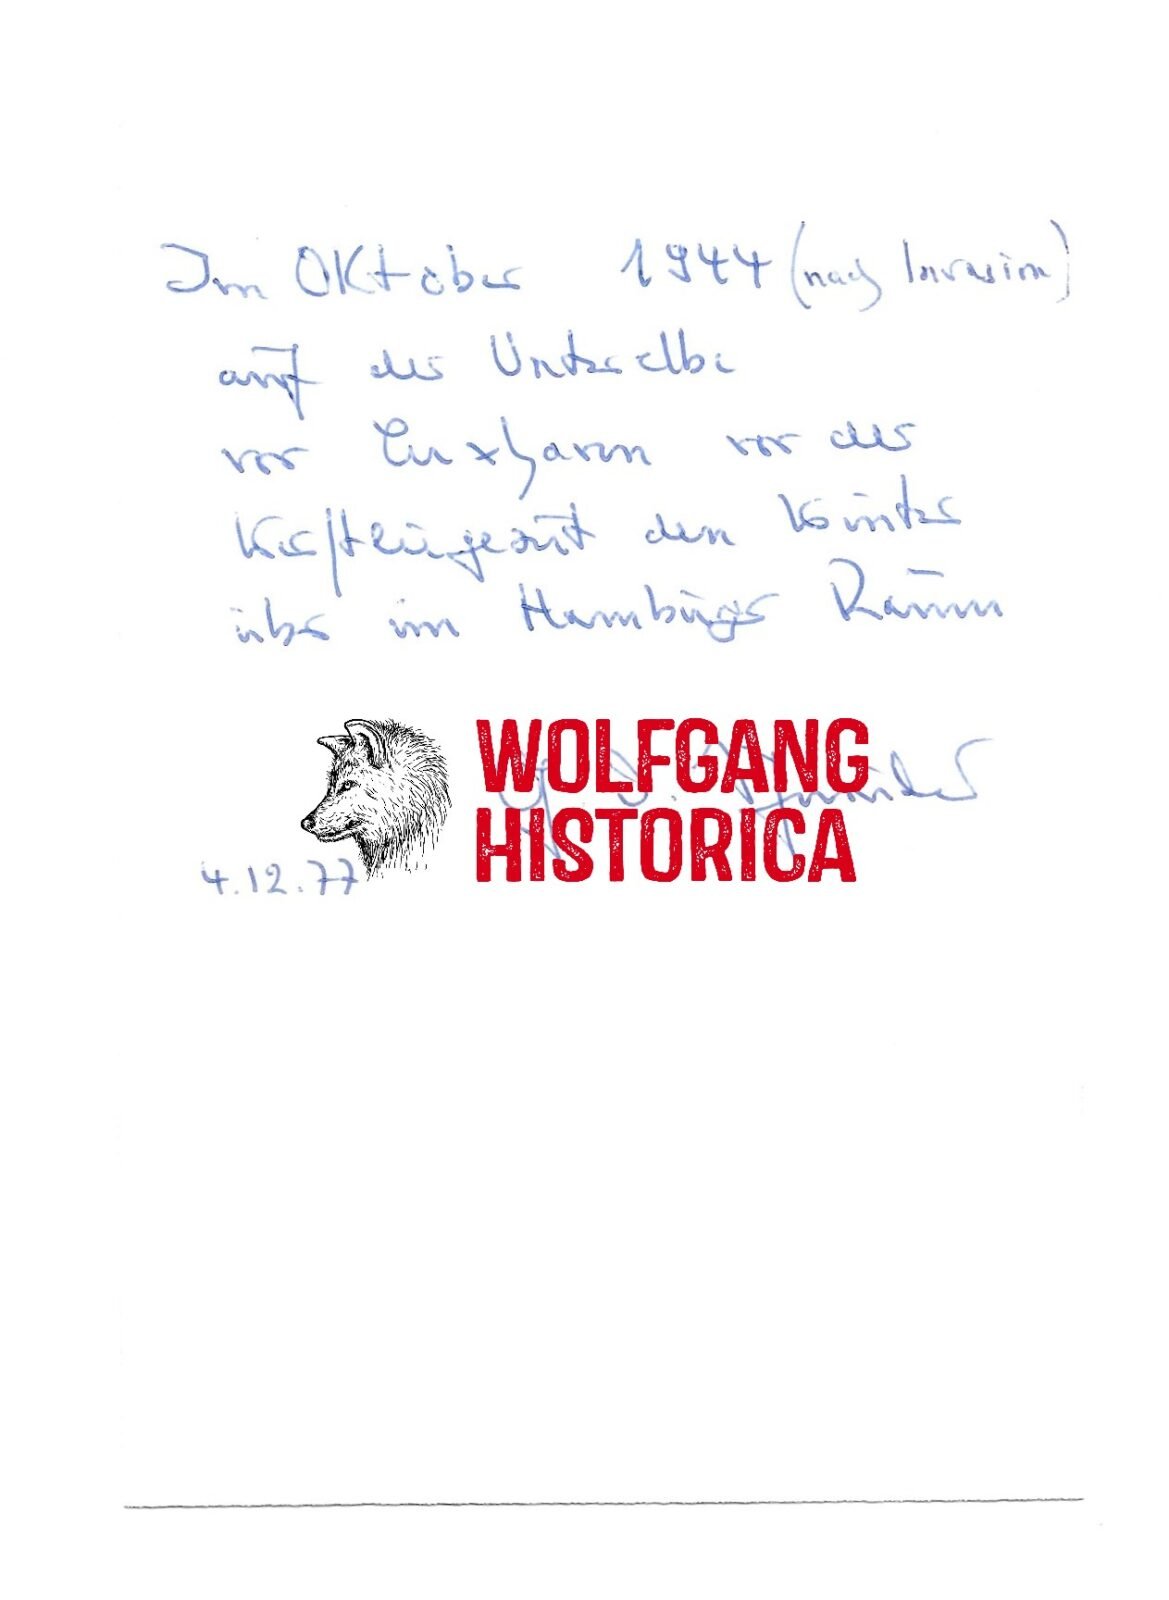 Im Oktober 1944 (nach Invasion)
auf der Unterelbe
vor Cuxhaven vor der
den Winter
über im Hamburger Raum
WOLFGANG
HISTORICA
4.12.77